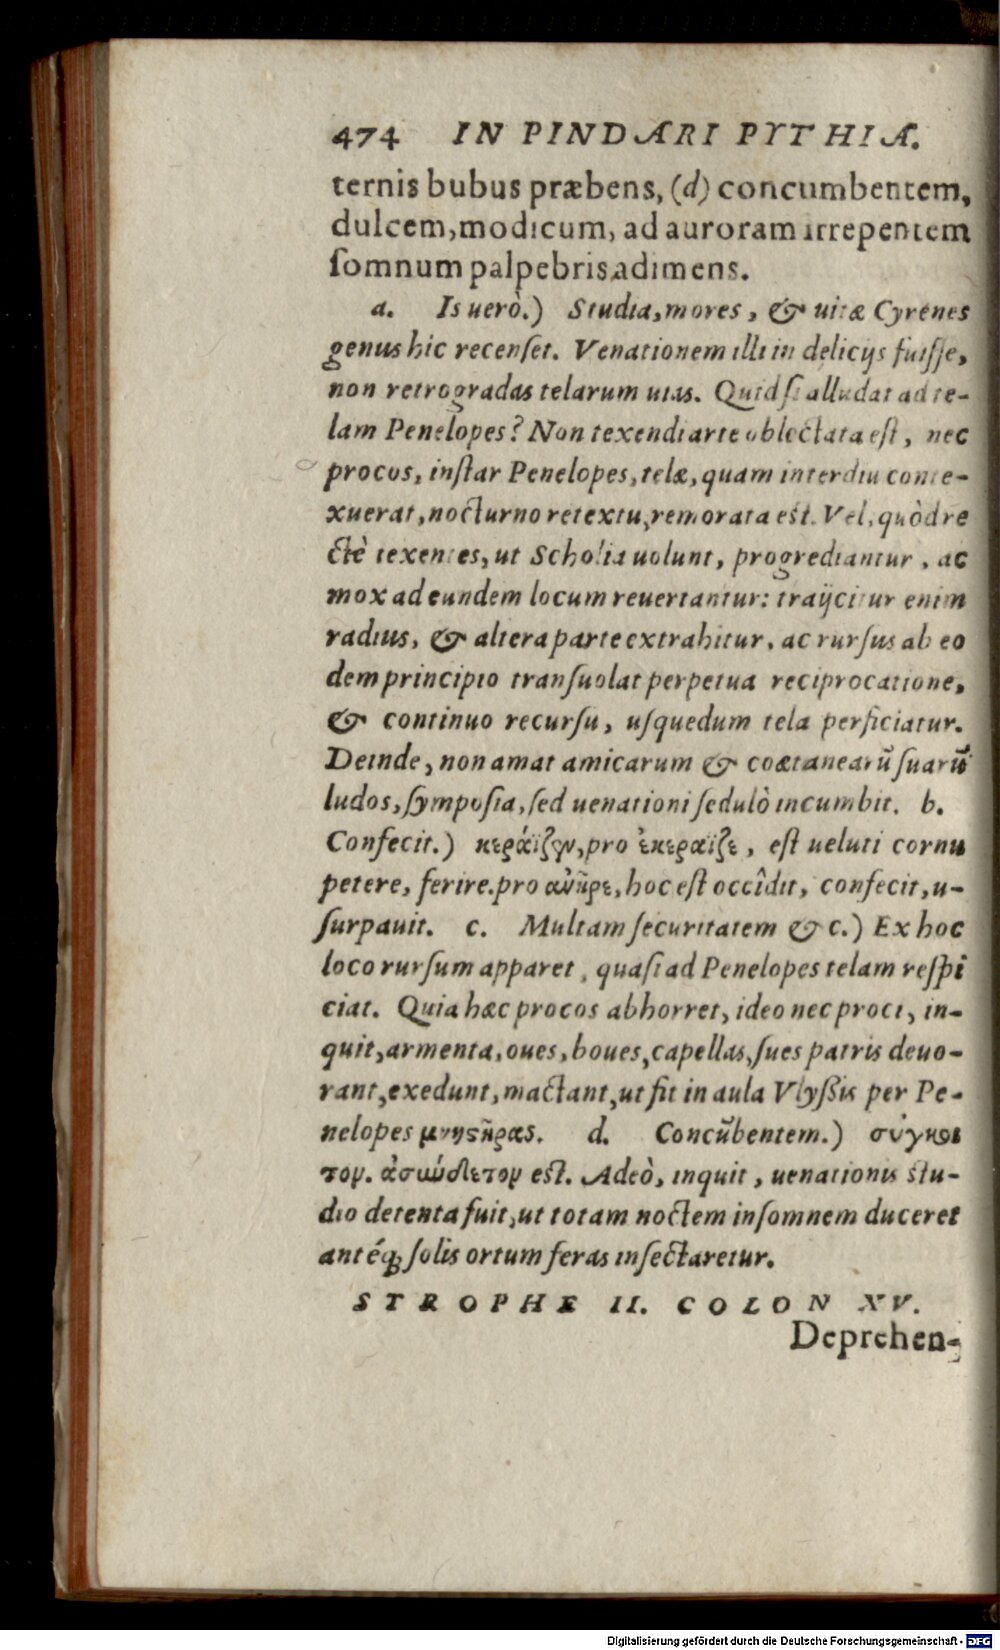 474 IN PINDARI PYTHIA.
ternis bubus præbens, (d) concumbentem,
dulcem, modicum, ad auroram irrepentem
ſomnum palpebris adimens.
a. Is uerò.) Studia, mores, & uitæ Cyrenes
genus hic recenſet. Venationem illi in delicijs fuiſſe,
non retrogradas telarum uias. Quid ſi alludat ad te-
lam Penelopes? Non texendi arte oblectata eſt, nec
procos, inſtar Penelopes, telæ, quam interdiu conte-
xuerat, nocturno retextu, remorata est. Vel, quòd re
ctè texentes, ut Scholia uolunt, progrediantur, ac
mox ad eundem locum reuertantur: traijcitur enim
radius, & altera parte extrahitur, ac rurſus ab eo
dem principio tranſuolat perpetua reciprocatione,
& continuo recurſu, uſquedum tela perficiatur.
Deinde, non amat amicarum & coætanearũ ſuarũ
ludos, ſympoſia, ſed uenationi ſedulò incumbit. b.
Confecit.) κεράϊζεν, pro ἐκεράϊζε, eſt ueluti cornu
petere, ferire. pro ἀνῆρε, hoc eſt occîdit, confecit, u-
ſurpauit. c. Multam ſecuritatem & c.) Ex hoc
loco rurſum apparet, quaſi ad Penelopes telam reſpi
ciat. Quia hæc procos abhorret, ideo nec proci, in-
quit, armenta, oues, boues, capellas, ſues patris deuo-
rant, exedunt, mactant, ut fit in aula Vlyßis per Pe-
nelopes μνηστῆρας. d. Concũbentem.) σύγκοι
τον. ἀσιώδετον est. Adeò, inquit, uenationis stu-
dio detenta fuit, ut totam noctem inſomnem duceret
antéq; ſolis ortum feras inſectaretur.
STROPHE II. COLON XV.
Deprehen-
Digitalisierung gefördert durch die Deutsche Forschungsgemeinschaft - DFG